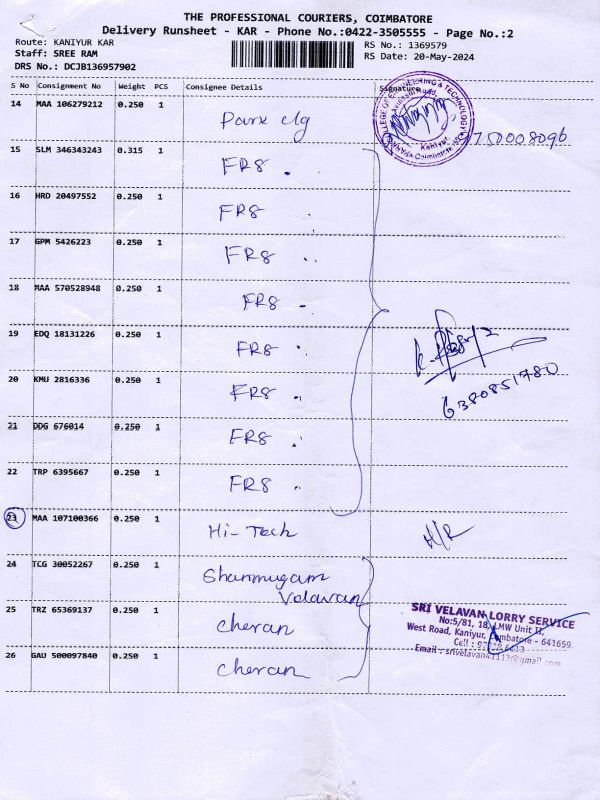 THE PROFESSIONAL COURIERS, COIMBATORE
Delivery Runsheet - KAR - Phone No.:0422-3505555 - Page No.:2
Route: KANIYUR KAR
RS No.: 1369579
Staff: SREE RAM
RS Date: 20-May-2024
DRS No.: DCJB136957902
S No Consignment No Weight PCS Consignee Details Signature
14 MAA 106279212 0.250 1 Park clg
COLLEGE OF ENGINEERING & TECHNOLOGY
Kaniyur,
Coimbatore
9750008096
15 SLM 346343243 0.315 1 FR8
16 HRD 20497552 0.250 1 FR8
17 GPM 5426223 0.250 1 FR8
18 MAA 570528948 0.250 1 FR8
19 EDQ 18131226 0.250 1 FR8
6380851780
20 KMU 2816336 0.250 1 FR8
21 DDG 676014 0.250 1 FR8
22 TRP 6395667 0.250 1 FR8
23 MAA 107100366 0.250 1 Hi-Tech H/R
24 TCG 30052267 0.250 1 Shanmugam
Velavan
25 TRZ 65369137 0.250 1 Cheran
26 GAU 500097840 0.250 1 Cheran
SRI VELAVAN LORRY SERVICE
No:5/81, 18, LMW Unit II,
West Road, Kaniyur, Coimbatore - 641659
Cell :
Email : srivelavan41113@gmail.com